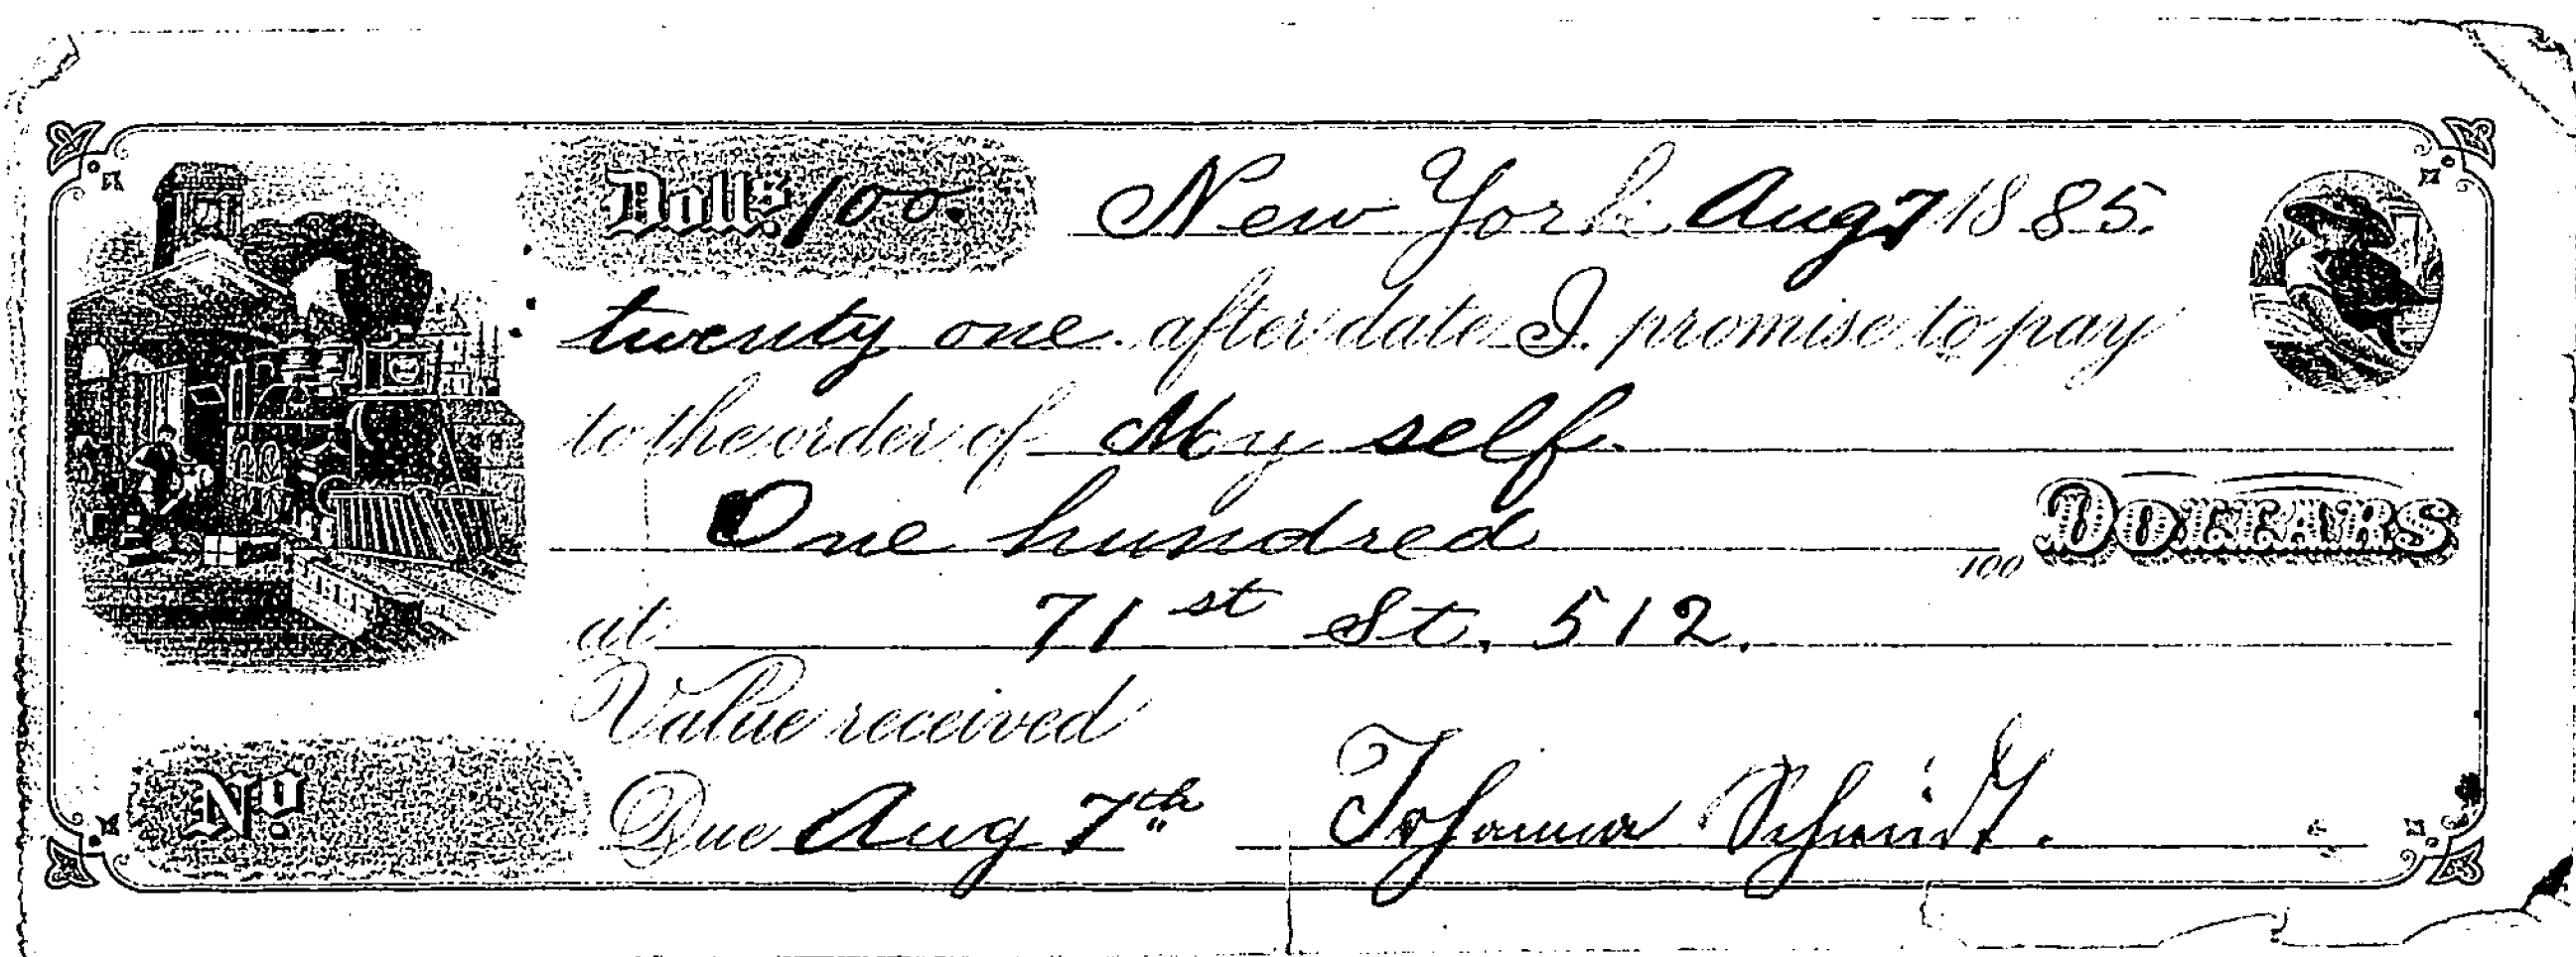 Dolls. 100. New York Aug 7 1885.
twenty one after date I promise to pay
to the order of My self.
One hundred 100 DOLLARS
at 71st St. 512.
Value received
No. Due Aug 7th Johanna Schmidt.